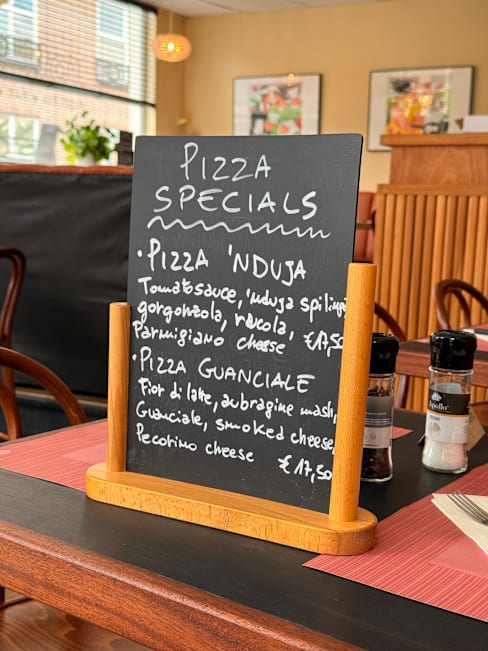 PIZZA
SPECIALS
• PIZZA 'NDUJA
Tomatosauce, 'nduja spilinga
gorgonzola, rucola,
Parmigiano cheese €17,50
• PIZZA GUANCIALE
Fior di latte, aubragine mash,
Guanciale, smoked cheese,
Pecorino cheese
€17,50
Apollo